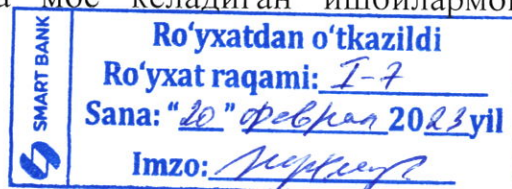 мос келадиган ишбилармон
SMART BANK
Ro'yxatdan o'tkazildi
Ro'yxat raqami: I-7
Sana: “20” феврал 2023 yil
Imzo: